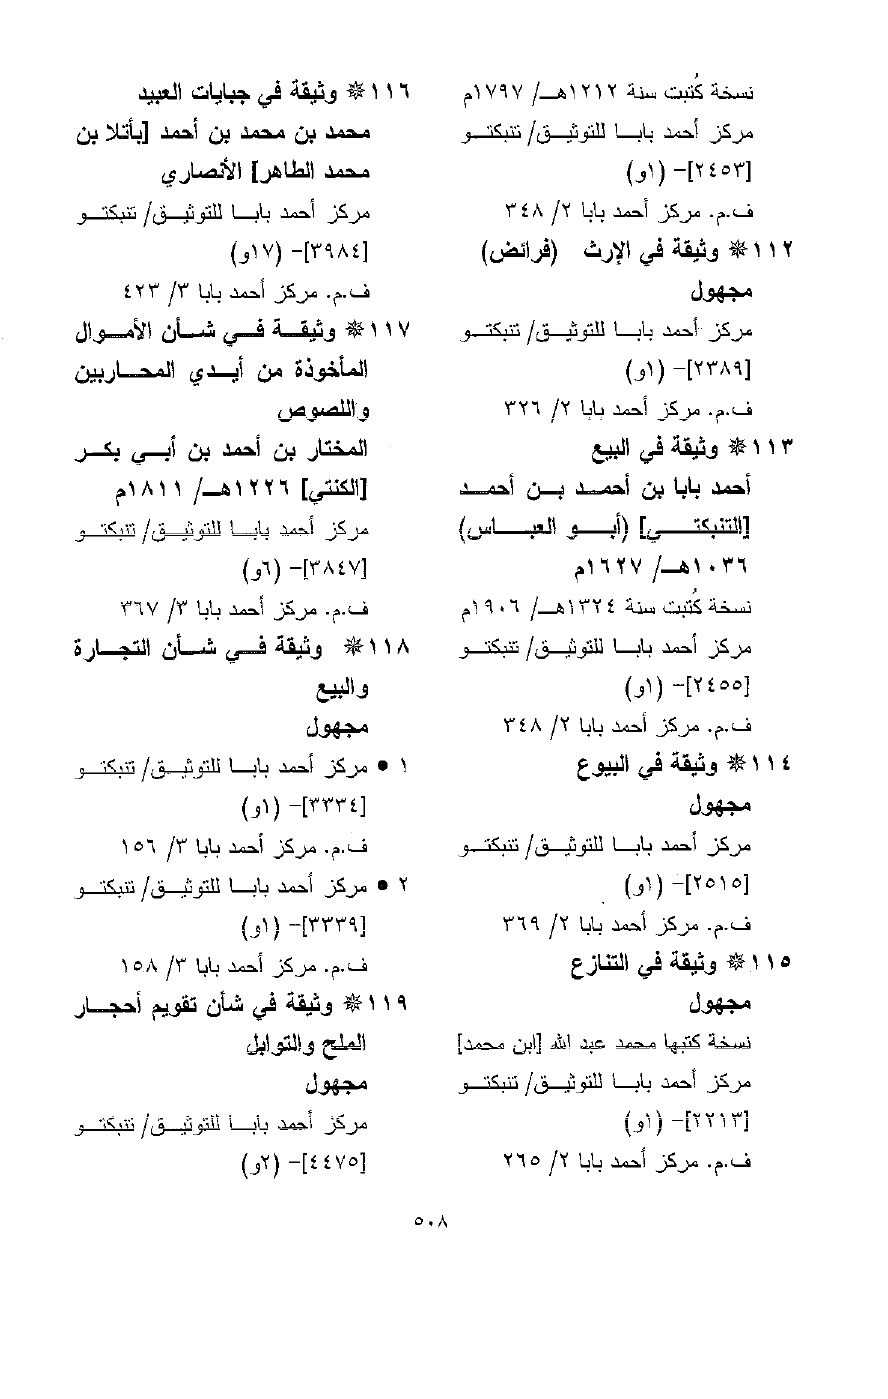 نسخة كُتبت سنة ١٢١٢هـ/ ١٧٩٧م
مركز أحمد بابا للتوثيق/ تنبكتو
[٢٤٥٣]- (١و)
ف.م. مركز أحمد بابا ٢/ ٣٤٨
١١٢ ❊ وثيقة في الإرث (فرائض)
مجهول
مركز أحمد بابا للتوثيق/ تنبكتو
[٢٣٨٩]- (١و)
ف.م. مركز أحمد بابا ٢/ ٣٢٦
١١٣ ❊ وثيقة في البيع
أحمد بابا بن أحمد بن أحمد
[التنبكتي] (أبو العباس)
١٠٣٦هـ/ ١٦٢٧م
نسخة كُتبت سنة ١٣٢٤هـ/ ١٩٠٦م
مركز أحمد بابا للتوثيق/ تنبكتو
[٢٤٥٥]- (١و)
ف.م. مركز أحمد بابا ٢/ ٣٤٨
١١٤ ❊ وثيقة في البيوع
مجهول
مركز أحمد بابا للتوثيق/ تنبكتو
[٢٥١٥]- (١و)
ف.م. مركز أحمد بابا ٢/ ٣٦٩
١١٥ ❊ وثيقة في التنازع
مجهول
نسخة كتبها محمد عبد الله [ابن محمد]
مركز أحمد بابا للتوثيق/ تنبكتو
[٢٢١٣]- (١و)
ف.م. مركز أحمد بابا ٢/ ٢٦٥
١١٦ ❊ وثيقة في جبايات العبيد
محمد بن محمد بن أحمد [بأتلا بن
محمد الطاهر] الأنصاري
مركز أحمد بابا للتوثيق/ تنبكتو
[٣٩٨٤]- (١٧و)
ف.م. مركز أحمد بابا ٣/ ٤٢٣
١١٧ ❊ وثيقة في شأن الأموال
المأخوذة من أيدي المحاربين
واللصوص
المختار بن أحمد بن أبي بكر
[الكنتي] ١٢٢٦هـ/ ١٨١١م
مركز أحمد بابا للتوثيق/ تنبكتو
[٣٨٤٧]- (٦و)
ف.م. مركز أحمد بابا ٣/ ٣٦٧
١١٨ ❊ وثيقة في شأن التجارة
والبيع
مجهول
١ ● مركز أحمد بابا للتوثيق/ تنبكتو
[٣٣٣٤]- (١و)
ف.م. مركز أحمد بابا ٣/ ١٥٦
٢ ● مركز أحمد بابا للتوثيق/ تنبكتو
[٣٣٣٩]- (١و)
ف.م. مركز أحمد بابا ٣/ ١٥٨
١١٩ ❊ وثيقة في شأن تقويم أحجار
الملح والتوابل
مجهول
مركز أحمد بابا للتوثيق/ تنبكتو
[٤٤٧٥]- (٢و)
٥٠٨